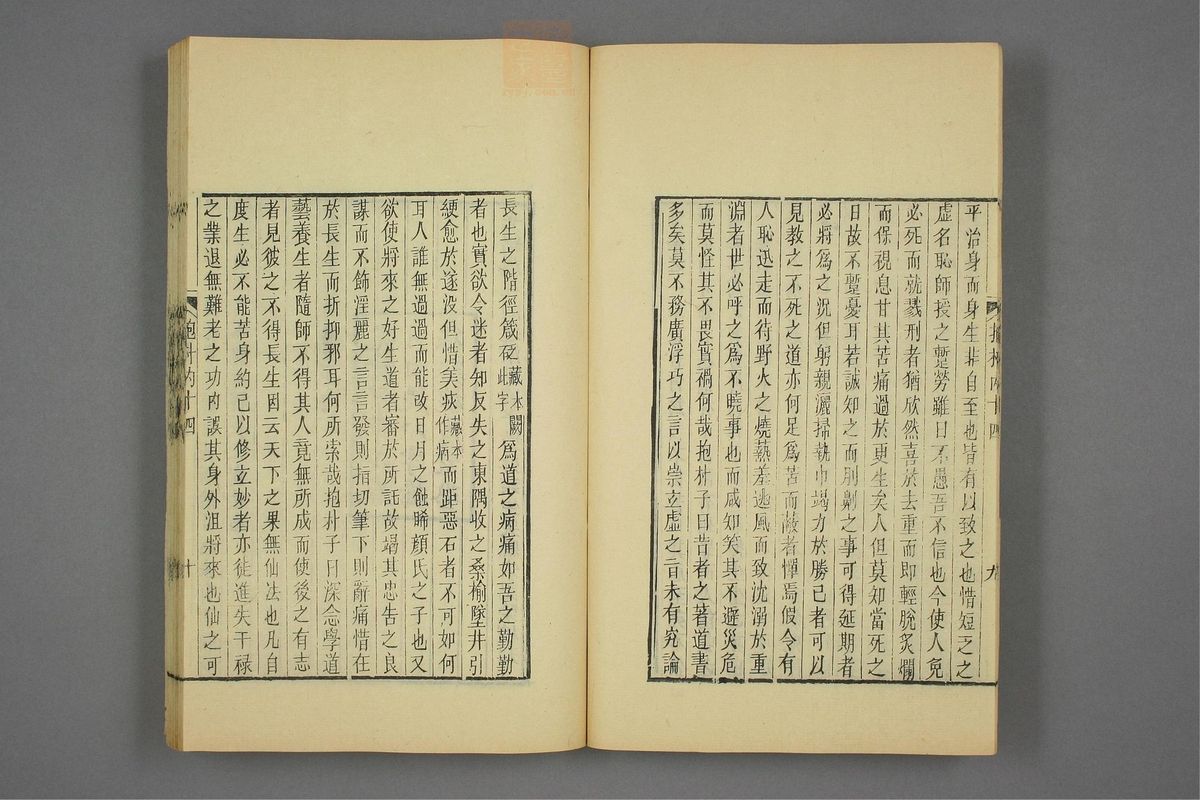 平治身而身生非自至也皆有以致之也惜短乏之
虛名恥師授之蹔勞雖曰不愚吾不信也今使人免
必死而就戮刑者猶欣然喜於去重而即輕脫炙爛
而保視息甘其苦痛過於更生矣人但莫知當死之
日故不蹔憂耳若誠知之而刖劓之事可得延期者
必將爲之況但躬親灑掃執巾竭力於勝己者可以
見教之不死之道亦何足爲苦而蔽者憚焉假令有
人恥迅走而待野火之燒爇羞逃風而致沈溺於重
淵者世必呼之爲不曉事也而咸知笑其不避災危
而莫怪其不畏實禍何哉抱朴子曰昔者之著道書
多矣莫不務廣浮巧之言以崇立虛之旨未有究論
九
長生之階徑箴砭藏本闕此字爲道之病痛如吾之勤勤
者也實欲令迷者知反失之東隅收之桑榆墜井引
綆愈於遂没但惜美疢藏本作病而距惡石者不可如何
耳人誰無過過而能改日月之蝕晞顔氏之子也又
欲使將來之好生道者審於所託故竭其忠告之良
謀而不飾淫麗之言言發則指切筆下則辭痛惜在
於長生而折抑邪耳何所索哉抱朴子曰深念學道
藝養生者隨師不得其人竟無所成而使後之有志
者見彼之不得長生因云天下之果無仙法也凡自
度生必不能苦身約己以修立妙者亦徒進失干祿
之業退無難老之功内誤其身外沮將來也仙之可
抱朴内十四
十